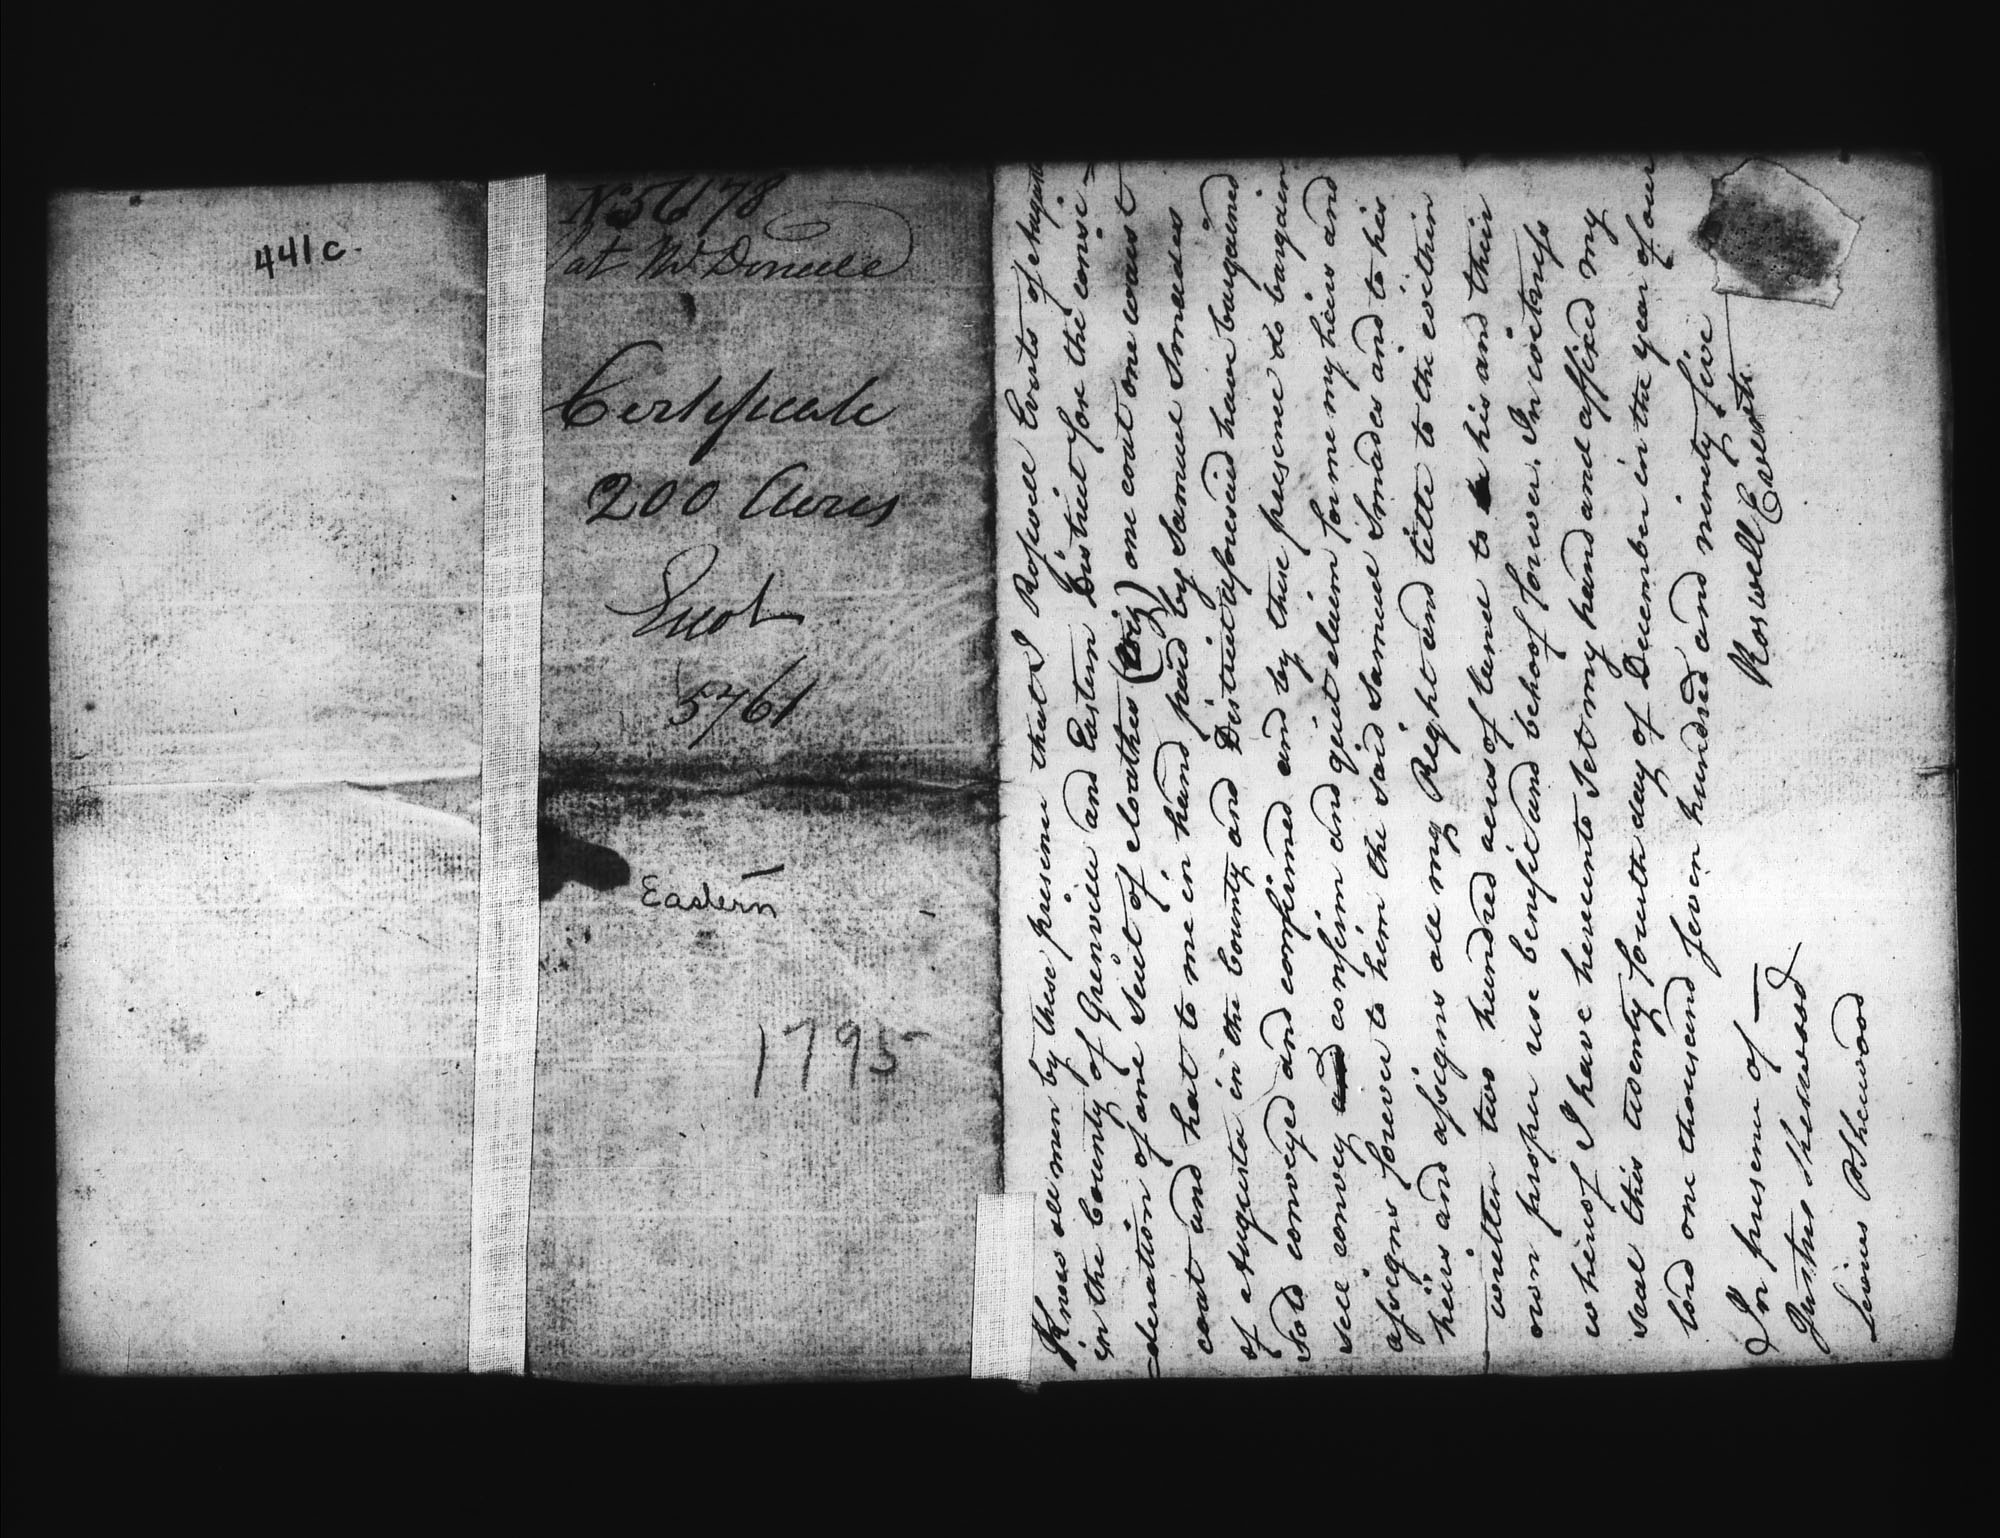 441c.
No 56178
Pat McDonell
Certificate
200 Acres
5761
Eastern
1795
Know all men by these presence that I Roswell Everts of Augusta
in the County of Grenville and Eastern District for the consi=
=deration of one Suit of cloathes (viz) one coat one waist
coat and hat to me in hand paid by Samuel Smades
of Augusta in the County and District aforesaid have bargained
Sold conveyed and confirmed and by these presence do bargain
sell convey and confirm and quit claim for me my heirs and
assigns forever to him the said Samuel Smades and to his
heirs and assigns all my Right and title to the within
written two hundred acres of land to his and their
own proper use benefit and behoof forever. In witness
whereof I have hereunto Set my hand and affixed my
seal this twenty fourth day of December in the year of our
lord one thousand seven hundred and ninety five
Roswell Everts
In presence of
Justus Sherwood
Livius P Sherwood